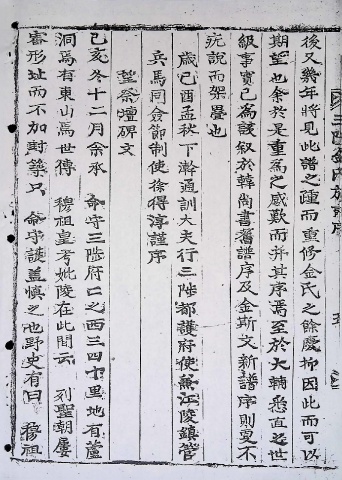 後又幾年將見此譜之踵而重修金氏之餘慶抑因此而可以
期望也余於是重爲之感歎而幷其序焉至於大輔悉直之世
級事實已爲該叙於韓尙書舊譜序及金斯文新譜序則更不
疣說而架疊也
歲己酉孟秋下澣通訓大夫行三陟都護府使兼江陵鎭管
兵馬同僉節制使徐得淳謹序
望祭壇碑文
己亥冬十二月余承 命守三陟府之西三四十里地有蘆
洞焉有東山焉世傳 穆祖皇考妣陵在此間云 列聖朝屢
審形址而不加封築只 命守護蓋慎之也野史有曰 穆祖